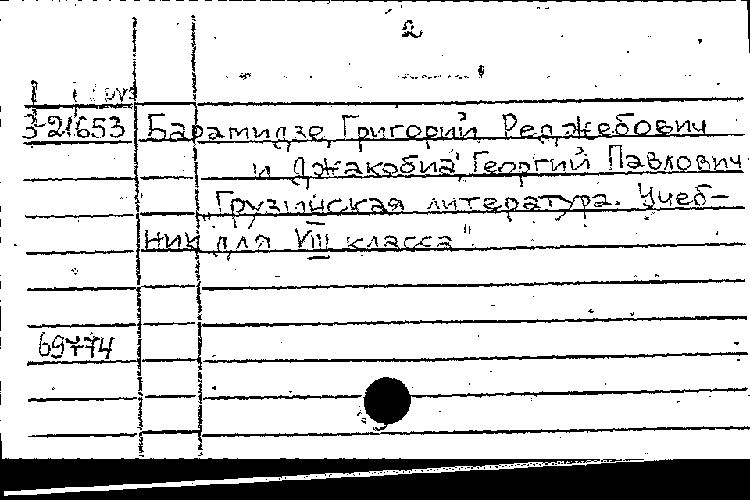 2
3-21653 Барамидзе, Григорий Реджебович
и Джакобиа, Георгий Павлович
„Грузинская литература. Учеб-
ник для VIII класса"
69774